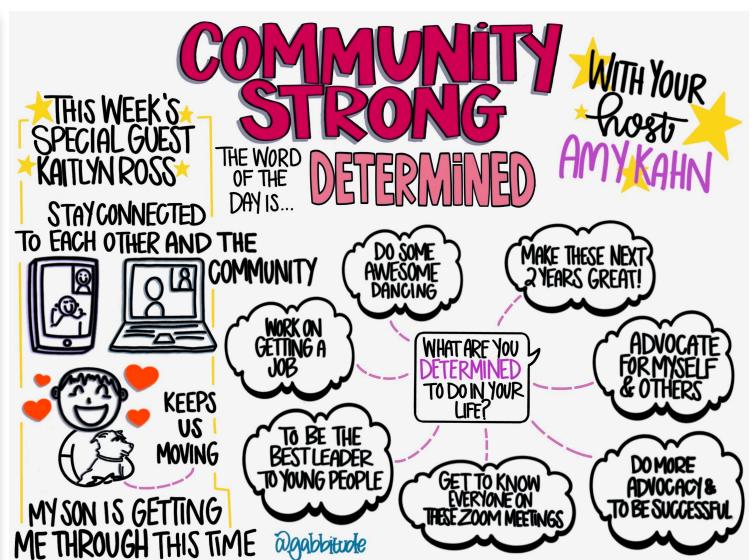 COMMUNITY
STRONG
WITH YOUR
host
AMY KAHN
THIS WEEK'S
SPECIAL GUEST
KAITLYN ROSS
THE WORD
OF THE
DAY IS...
DETERMINED
STAY CONNECTED
TO EACH OTHER AND THE
COMMUNITY
KEEPS
US
MOVING
MY SON IS GETTING
ME THROUGH THIS TIME
WHAT ARE YOU
DETERMINED
TO DO IN YOUR
LIFE?
DO SOME
AWESOME
DANCING
MAKE THESE NEXT
2 YEARS GREAT!
WORK ON
GETTING A
JOB
ADVOCATE
FOR MYSELF
& OTHERS
TO BE THE
BEST LEADER
TO YOUNG PEOPLE
GET TO KNOW
EVERYONE ON
THESE ZOOM MEETINGS
DO MORE
ADVOCACY &
TO BE SUCCESSFUL
@gabbitude